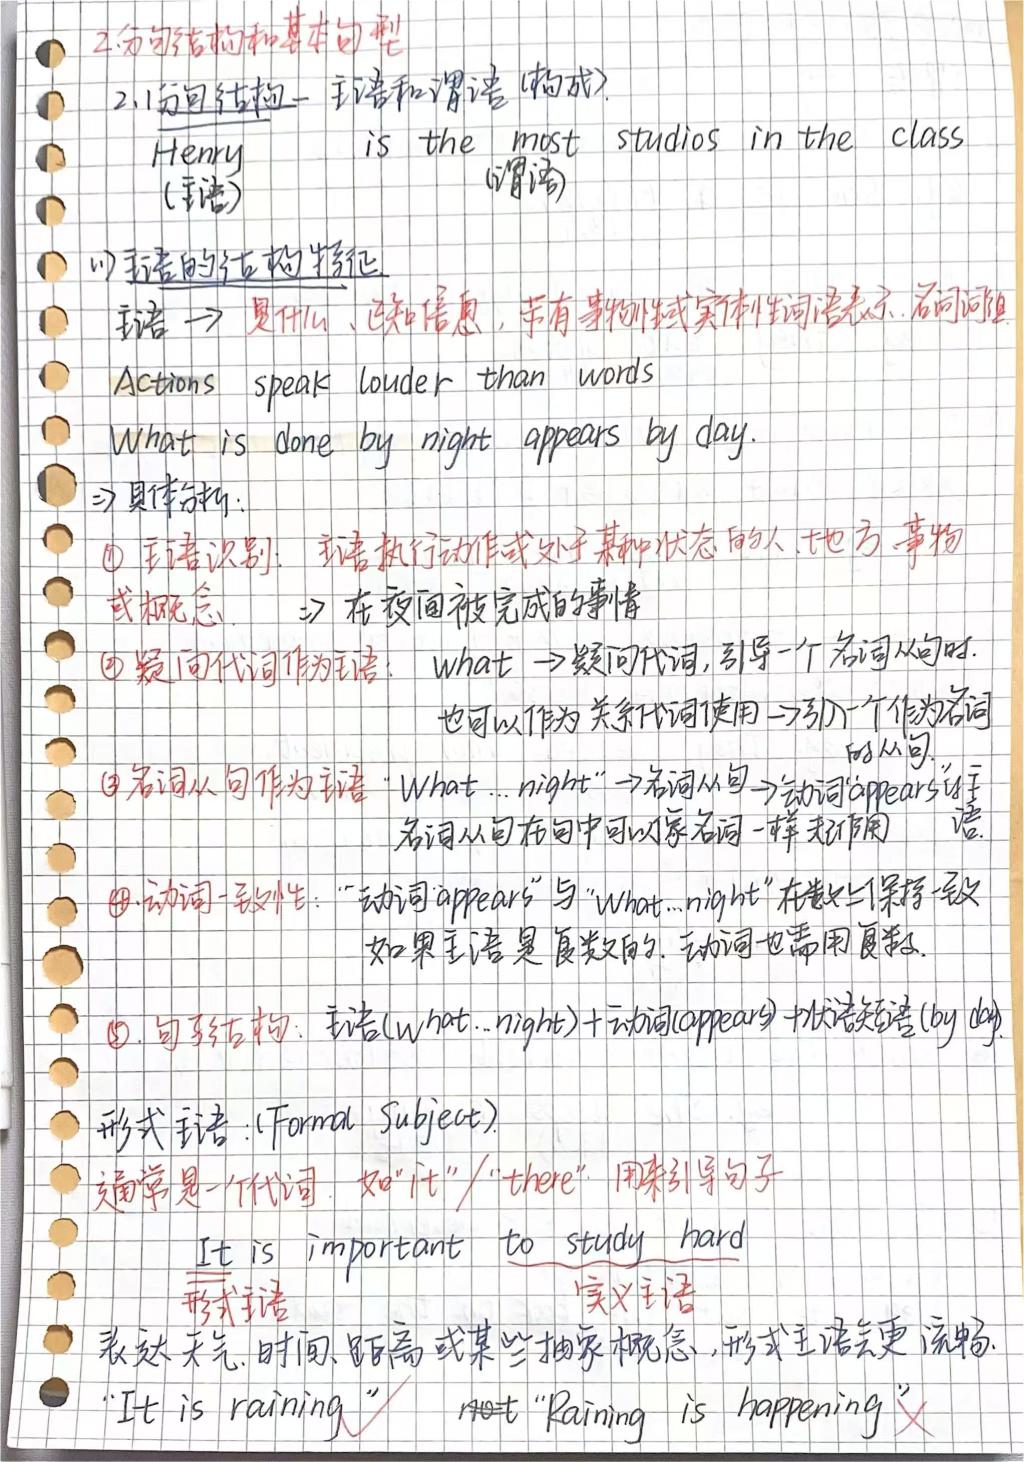 2.分句结构和基本句型
2.1分句结构 — 主语和谓语(构成).
Henry is the most studios in the class
(主语) (谓语)
(1)主语的结构特征
主语 → 是什么、已知信息, 带有事物性或实体性词语表示. 名词词组
Actions speak louder than words
What is done by night appears by day.
⇒ 具体分析:
① 主语识别: 主语执行动作或处于某种状态的人、地方、事物
或概念. ⇒ 在夜间被完成的事情
② 疑问代词作为主语: what → 疑问代词, 引导一个名词从句时.
也可以作为关系代词使用→引入一个作为名词
的从句.
③ 名词从句作为主语 "What...night"→名词从句→动词"appears"的主
语.
名词从句在句中可以像名词一样起作用
④.动词一致性: "动词"appears"与"What...night"在数上保持一致
如果主语是复数的. 动词也需用复数.
⑤.句子结构: 主语(What...night)+动词(appears)+状语短语(by day).
形式主语:(Formal Subject).
通常是一个代词. 如"it"/"there". 用来引导句子
It is important to study hard
形式主语 实义主语
表达天气、时间、距离或某些抽象概念, 形式主语会更流畅.
"It is raining" ✓ not "Raining is happening" ✗